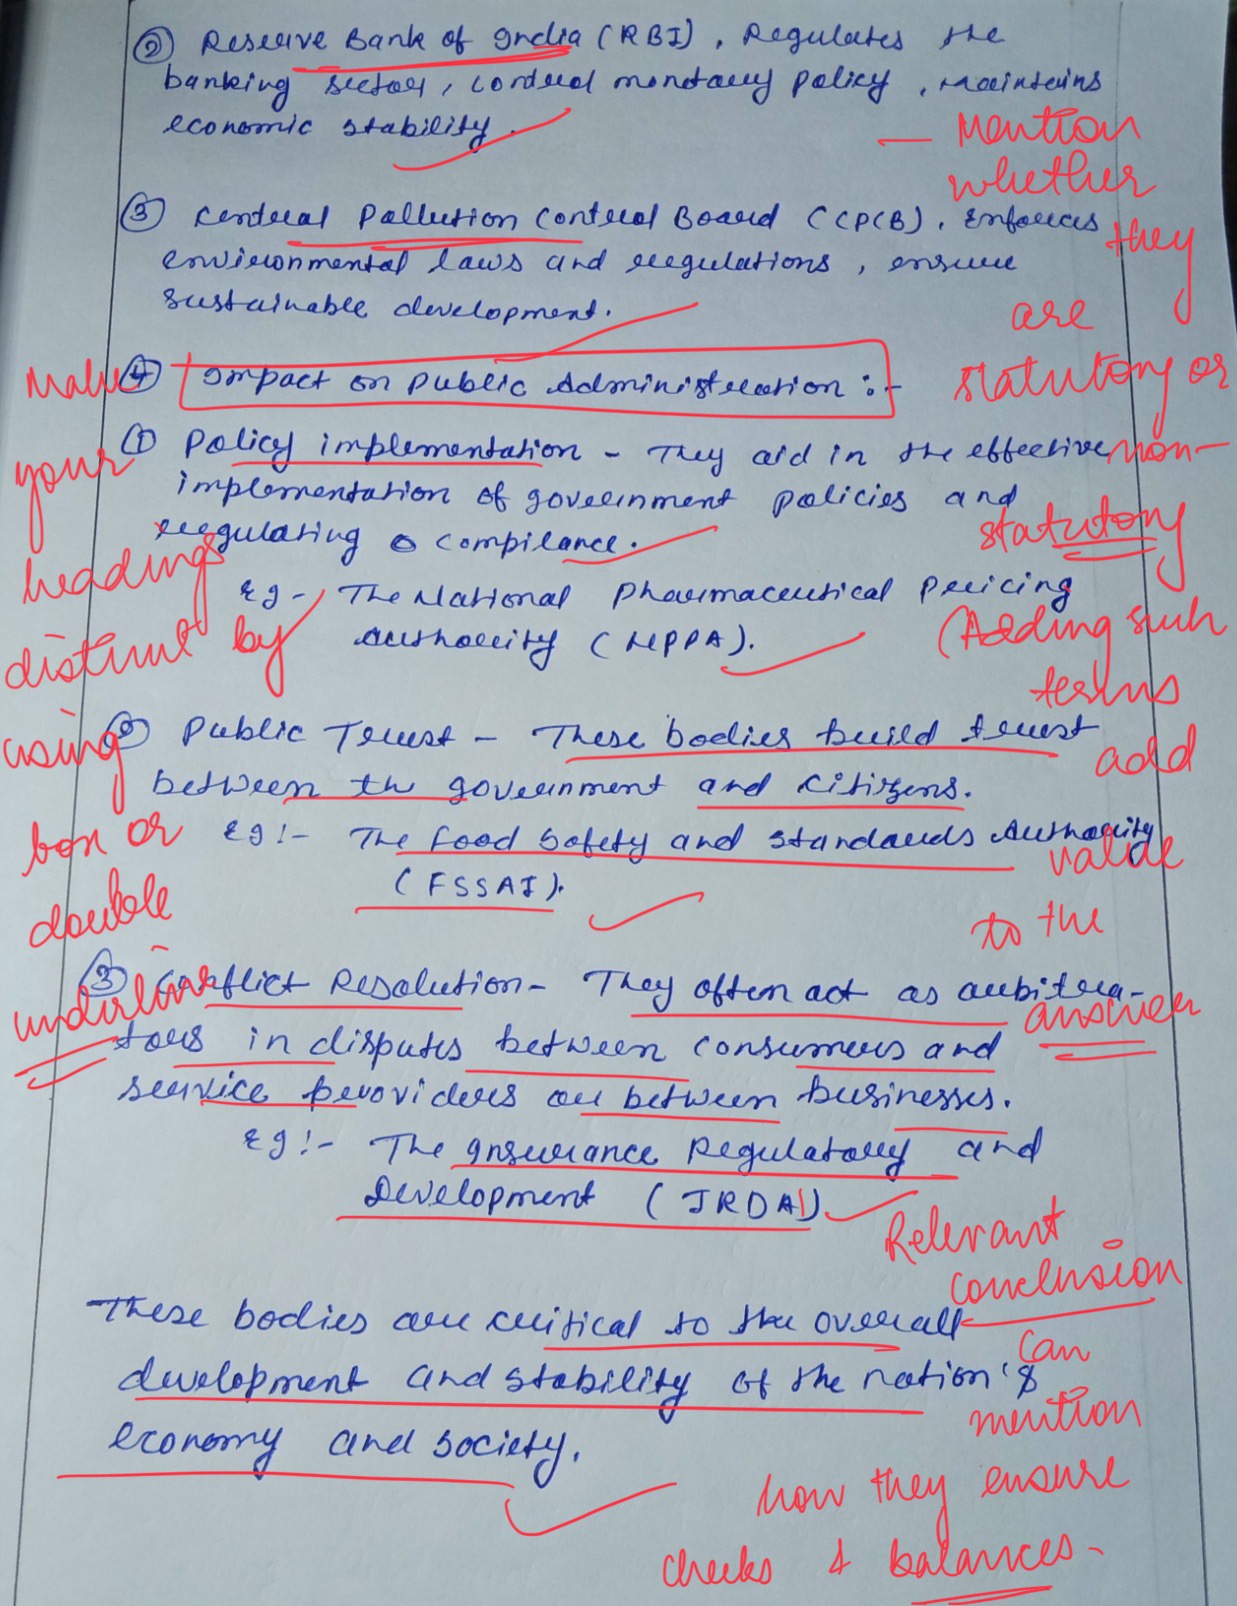 ② Reserve Bank of India (RBI), Regulates the
banking sector, control monetary policy, maintains
economic stability.
— Mention
whether
they
are
statutory or
non-
statutory
(Adding such
terms
add
value
to the
answer
③ Central Pollution Control Board (CPCB). Enforces
environmental laws and regulations, ensure
sustainable development.
④ Impact on Public Administration :-
Make
your
headings
distinct by
using
box or
double
underline
① Policy implementation - They aid in the effective
implementation of government policies and
regulating compilance.
Eg- The National Pharmaceutical Pricing
Authority (NPPA).
② Public Trust - These bodies build trust
between the government and citizens.
Eg:- The Food Safety and Standards Authority
(FSSAI).
③ Conflict Resolution- They often act as arbitra-
tors in disputes between consumers and
service providers or between businesses.
Eg:- The Insurance Regulatory and
Development (IRDAI)
These bodies are critical to the overall
development and stability of the nation's
economy and society.
Relevant
conclusion
can
mention
how they ensure
checks & balances.